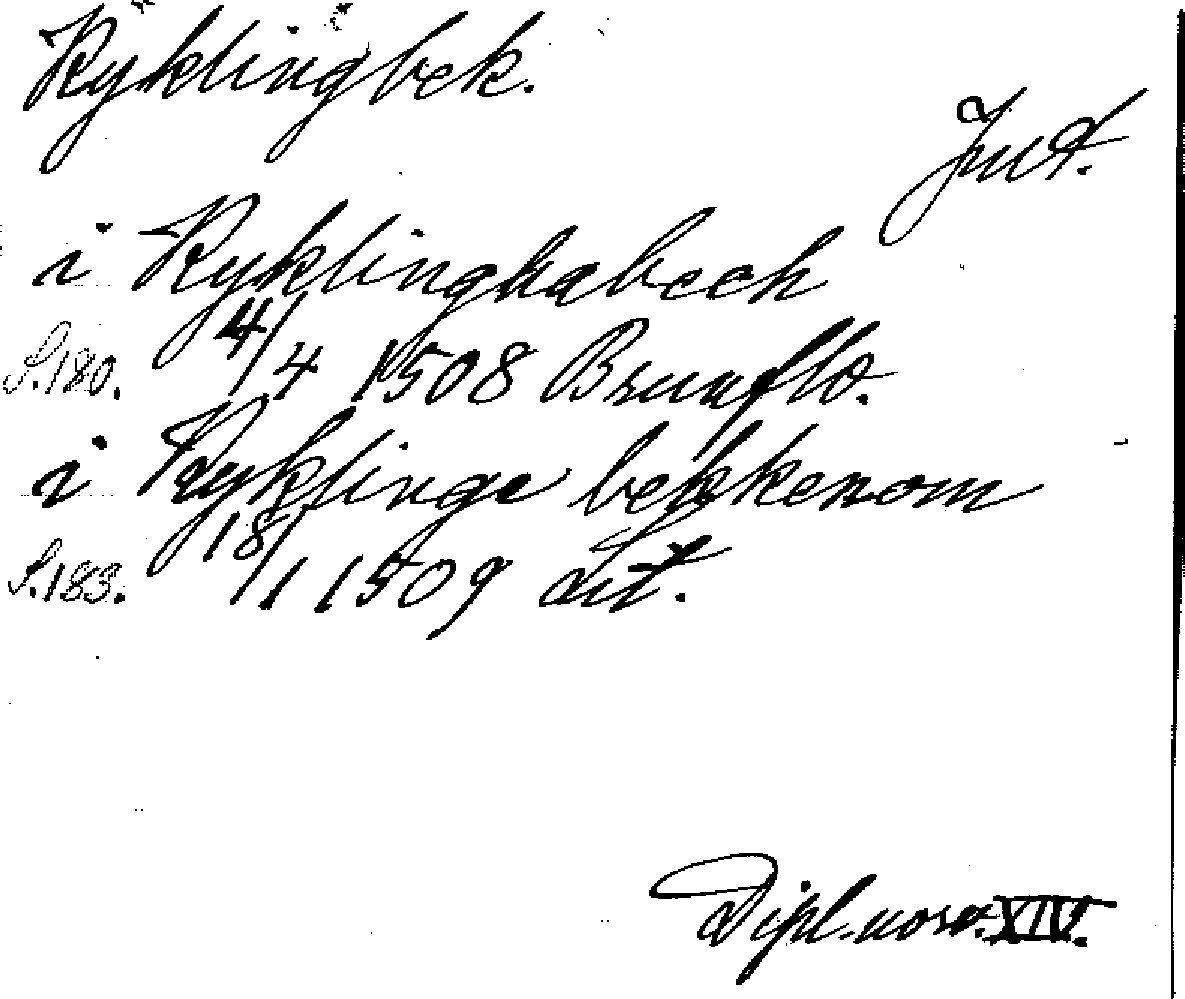 Ryklingbek.
Jmt.
i Ryklinghabech
S.180. 4/4 1508 Brunflo.
i Ryklinge bekkenom
S.183. 18/1 1509 Lit.
Dipl. norv. XIV.